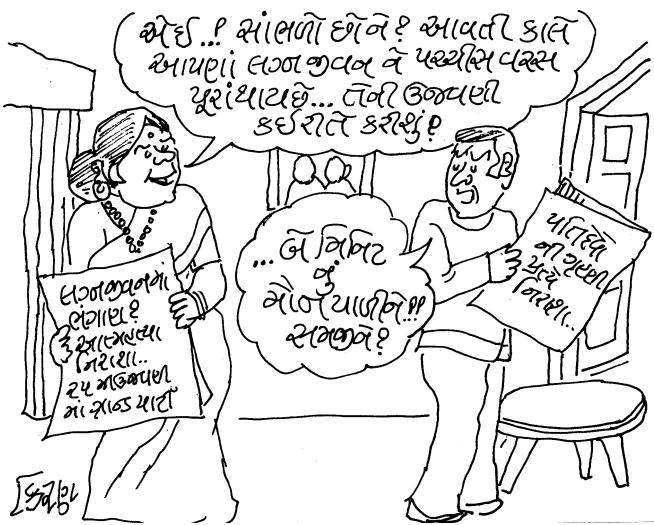 એઈ..! સાંભળો છોને? આવતી કાલે
આપણાં લગ્નજીવન ને પચ્ચીસ વરસ
પૂરાંથાય છે... તેની ઉજવણી
કઈ રીતે કરીશું?
...બે મિનિટ
નું
મૌન પાળીને..!!
સમજીને?
લગ્નજીવનમાં
ભંગાણ?
આત્મહત્યા
નિરાશા..
૨૫ મી ઉજવણી
માં ગ્રાન્ડ પાર્ટી
પતિદેવો
ની ગૃહણી
પ્રત્યે
નિરાશા..